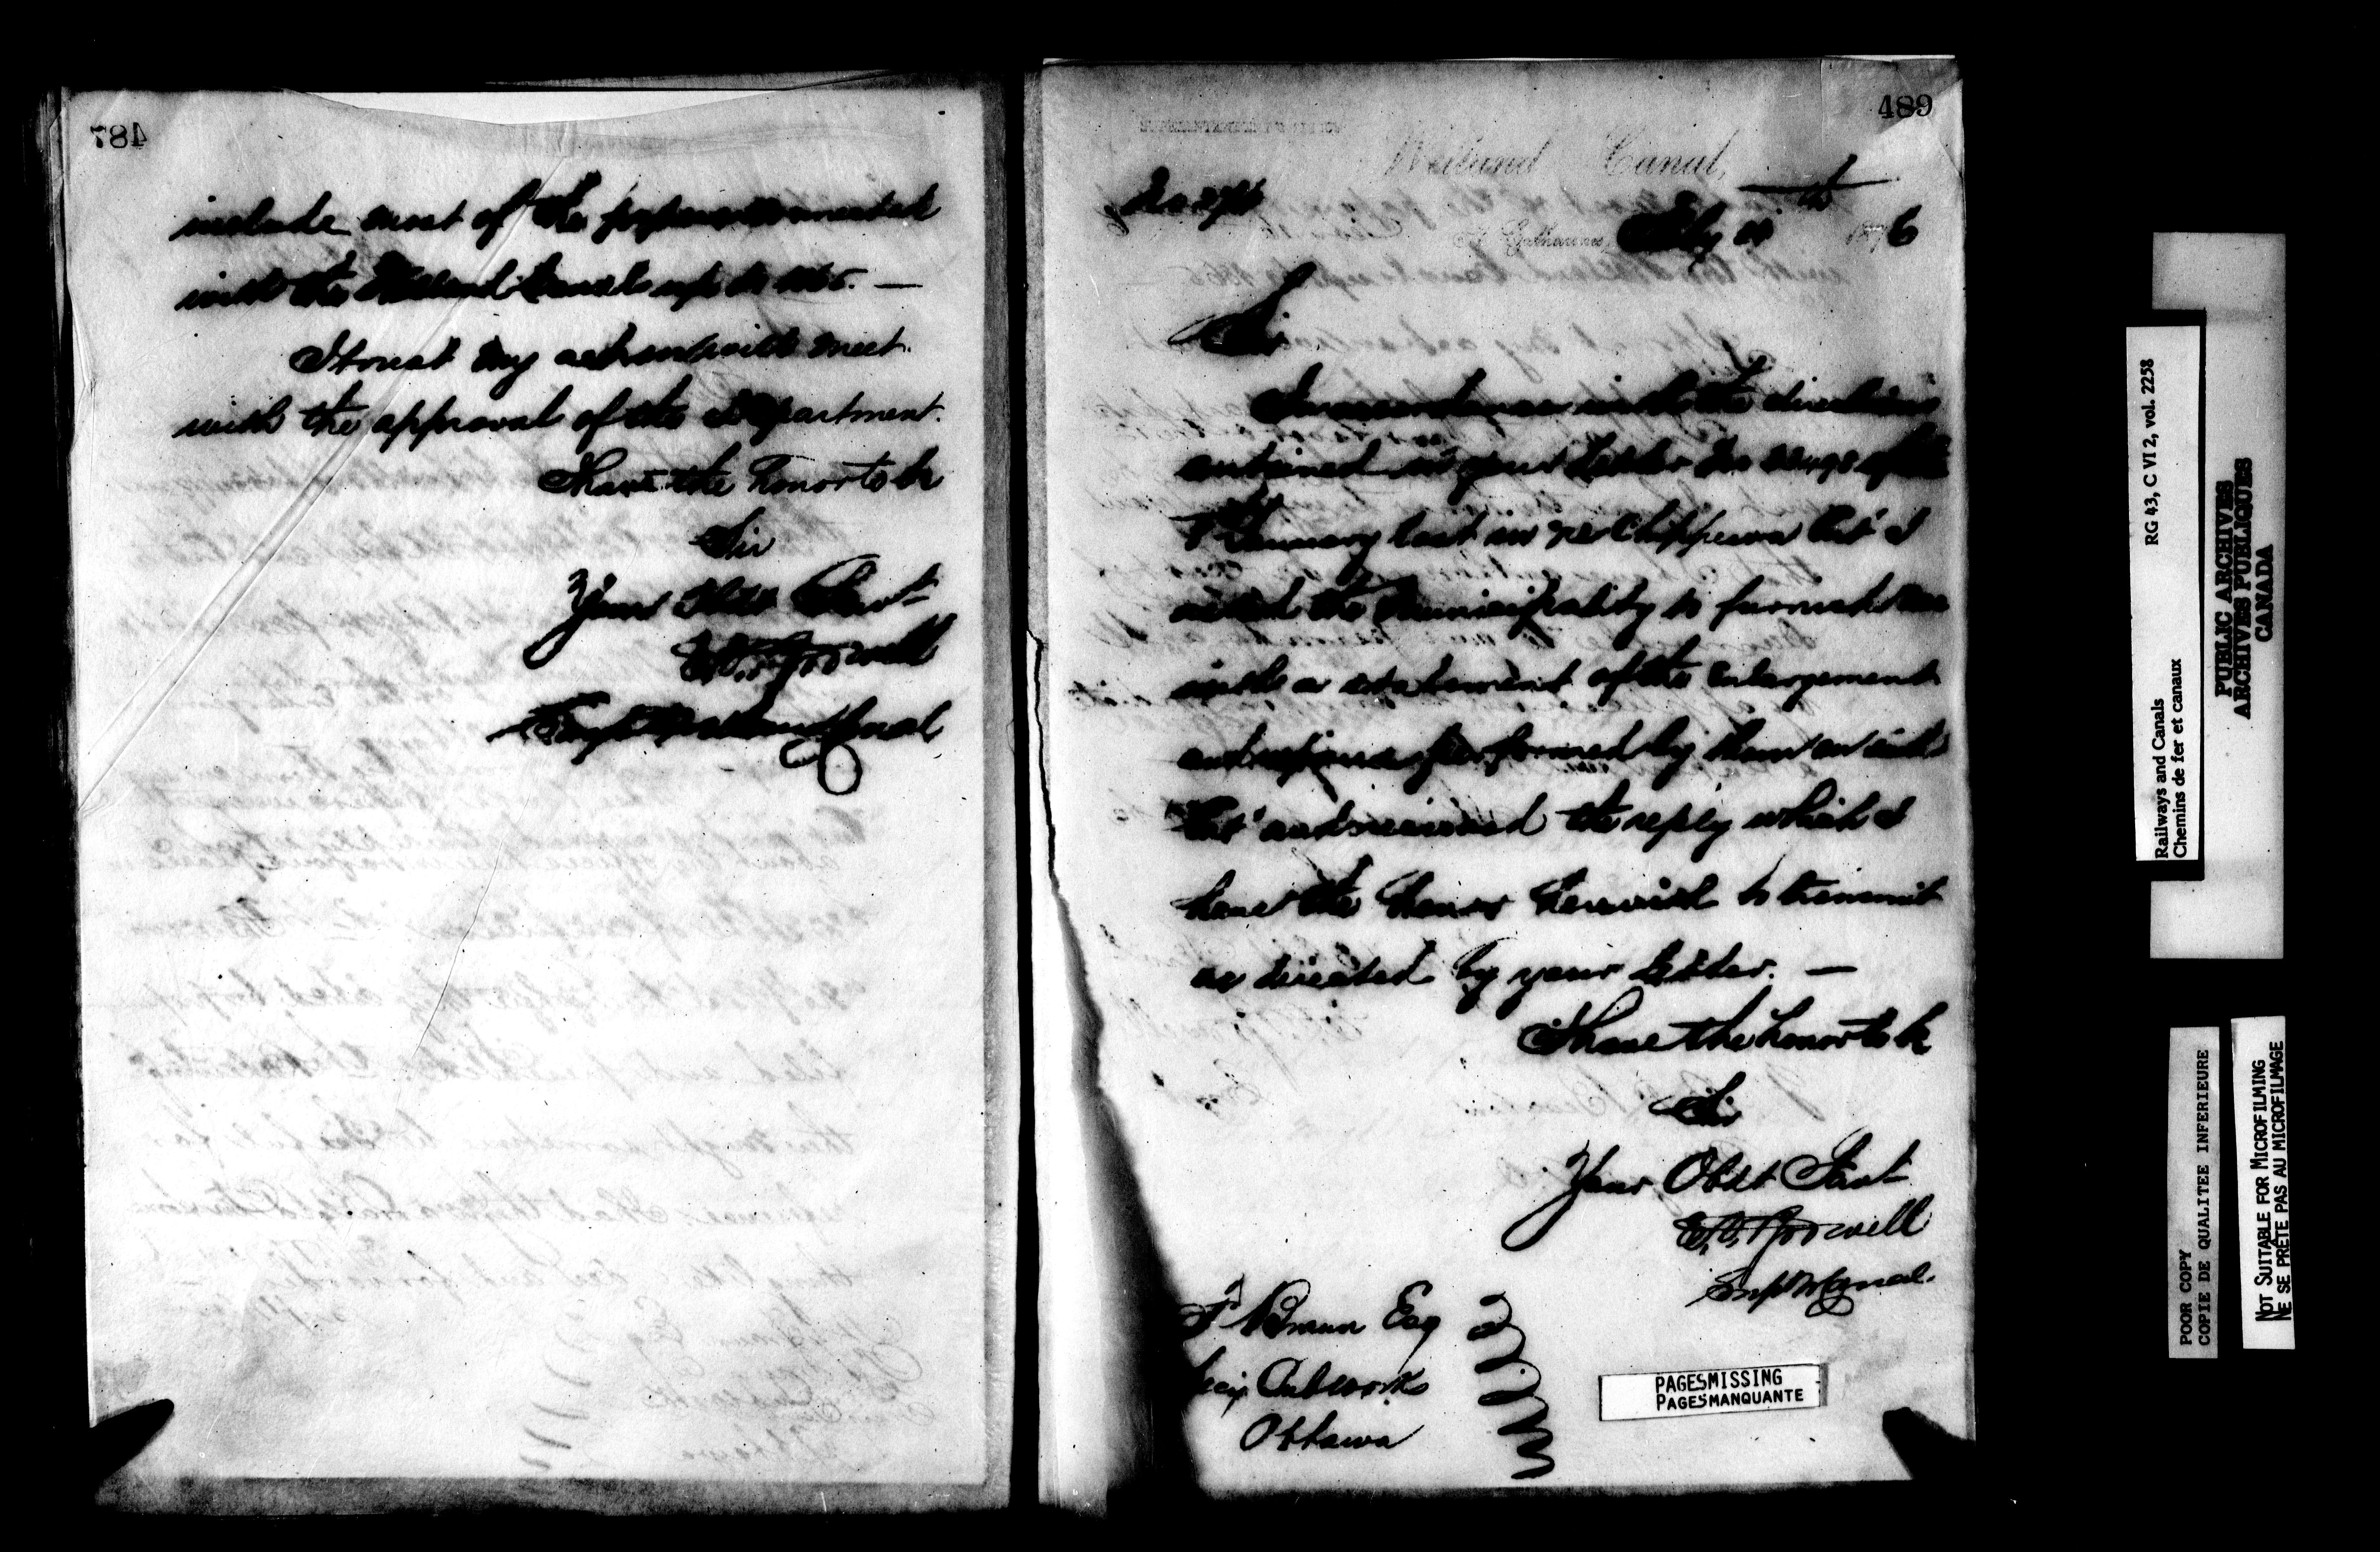 487
include most of the papers connected
with the Welland Canal up to 1865. —
I trust my action will meet
with the approval of the Department.
I have the honor to be
Sir
Your Obdt Servt
Supt Welland Canal
489
SUPERINTENDENT'S OFFICE
Welland Canal,
St Catharines, Feby 1876
Sir
In accordance with the directions
contained in your Letter No of the
January last in re Chippewa Cut I
asked the Municipality to furnish me
with a statement of the Enlargement
and repairs performed by them on said
Cut and received the reply which I
have the honor herewith to transmit
as directed by your Letter. —
I have the honor to be
Sir
Your Obdt Servt
Supt W Canal.
F Braun Esq
Secy Pub Works
Ottawa
PAGES MISSING
PAGES MANQUANTE
Railways and Canals
Chemins de fer et canaux
RG 43, C VI 2, vol. 2258
PUBLIC ARCHIVES
ARCHIVES PUBLIQUES
CANADA
POOR COPY
COPIE DE QUALITEE INFERIEURE
NOT SUITABLE FOR MICROFILMING
NE SE PRÊTE PAS AU MICROFILMAGE